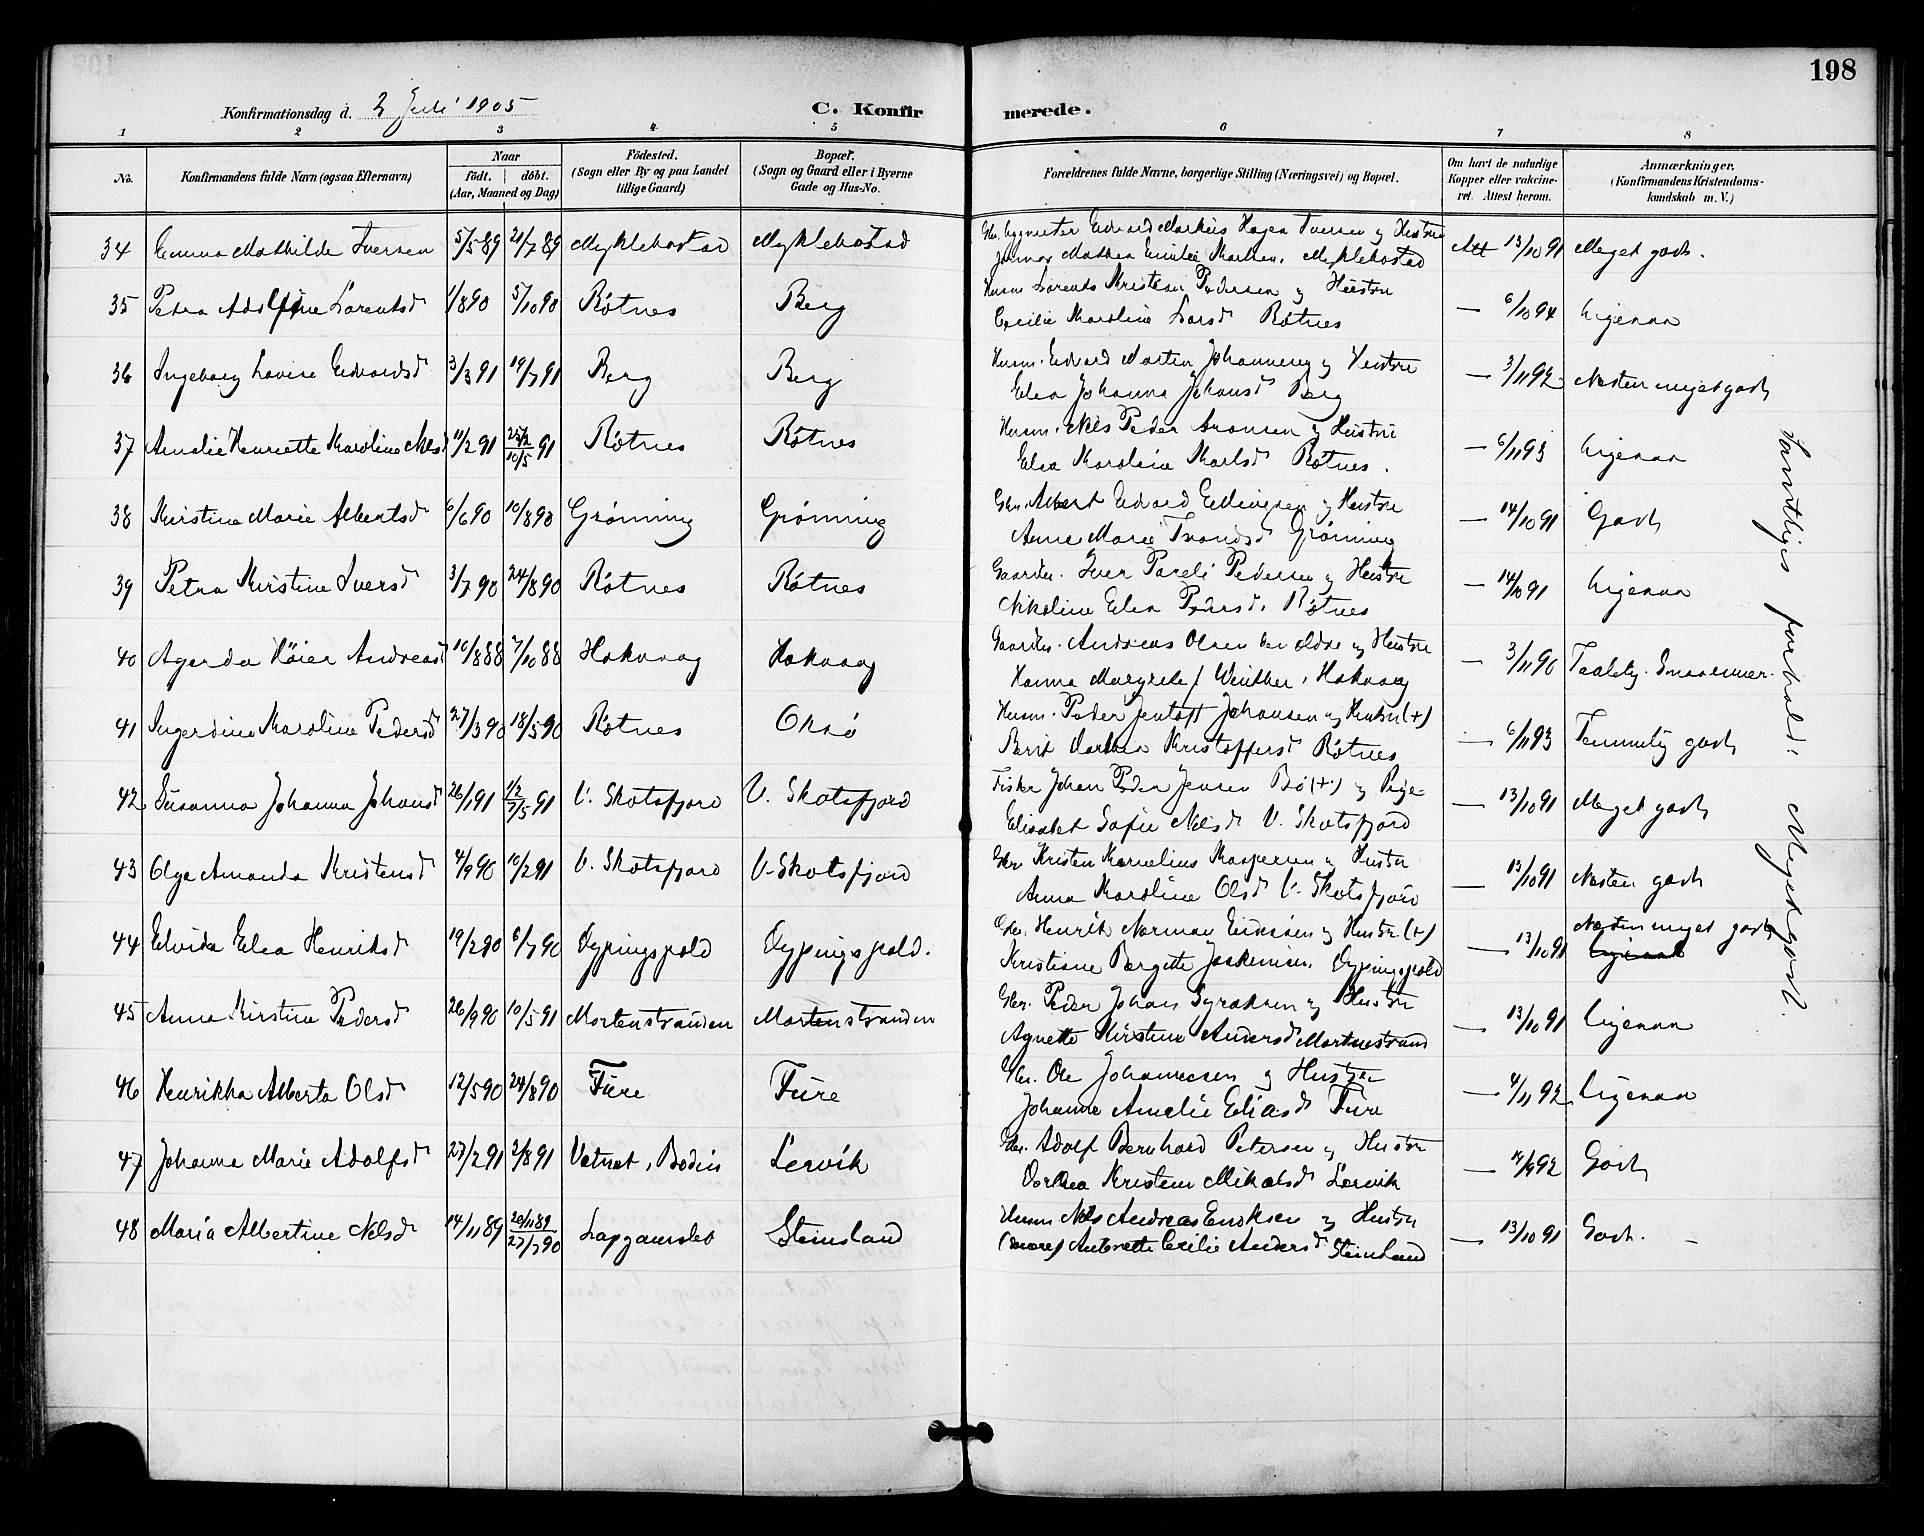 198
Konfirmationsdag d. 2 Juli 1905
C. Konfirmerede.
1 2 3 4 5 6 7 8
No.
Konfirmandens fulde Navn (ogsaa Efternavn)
Naar
födt. döbt.
(Aar, Maaned og Dag)
Födested.
(Sogn eller By og paa Landet
tillige Gaard)
Bopæl.
(Sogn og Gaard eller i Byerne
Gade og Hus-No.
Forældrenes fulde Navne, borgerlige Stilling (Næringsvei) og Bopæl.
Om havt de naturlige
Kopper eller vakcine-
ret. Attest herom.
Anmærkninger.
(Konfirmandens Kristendoms-
kundskab m. V.)
34 Emma Mathilde Iversen 5/5 89 21/7 89 Myklebostad Myklebostad
Edvard Markus Hagen Iversen og Hustru
Mathea Emilie Myklebostad
Att 13/10 91 Meget godt.
35 Petra Adolfine Lorentsd 1/8 90 5/10 90 Røtnes Berg
Husm. Lorents Kristian Pedersen og Hustru
Cecilie Karoline Larsd Røtnes
— 6/10 94 Ligesaa
36 Ingeborg Lovise Edvardsd 3/3 91 19/7 91 Berg Berg
Husm. Edvard Martin Johannesen og Hustru
Elea Johanna Johansd Berg
— 3/11 92 Næsten meget godt
37 Amalie Henriette Karoline Nilsd 11/2 91 25/2 10/5 91 Røtnes Røtnes
Husm. Nils Peder Aronsen og Hustru
Elea Karoline Karlsd Røtnes.
— 6/11 93 Ligesaa
38 Kirstine Marie Albertsd 6/6 90 10/8 90 Grønning Grønning
Gbr. Albert Edvard Ellingsen og Hustru
Anne Marie Trondsd Grønning
— 14/10 91 Godt
39 Petra Kirstine Iversd 3/7 90 24/8 90 Røtnes Røtnes
Gaardbr. Iver Pareli Pedersen og Hustru
Nikoline Elea Pedersd. Røtnes
— 14/10 91 Ligesaa
40 Agerda Høier Andreasd 10/8 88 7/10 88 Hokvaag Hokvaag
Gaardbr. Andreas Olsen den ældre og Hustru
Hanna Margrete f Winther, Hokvaag
— 3/11 90 Taalelig.
41 Ingerdine Karoline Pedersd 27/3 90 18/5 90 Røtnes Oksø
Husm. Peder Jentoft Johansen og Hustru (+)
Berit Marthea Kristoffersd Røtnes
— 6/11 93 Temmelig godt
42 Susanna Johanna Johansd 26/1 91 1/2 7/5 91 V. Skotsfjord V. Skotsfjord
Fisker Johan Peder Jensen Bø (+) og Pige
Elisabet Sofie Nilsd V. Skotsfjord
— 13/10 91 Meget godt
43 Olga Amanda Kristensd 4/9 90 10/2 91 V. Skotsfjord V. Skotsfjord
Gbr. Kristen Kornelius Kaspersen og Hustru
Anna Karoline Olsd V. Skotsfjord
— 13/10 91 Næsten godt
44 Elvida Elea Henriksd 19/2 90 6/7 90 Dypingspold Dypingspold.
Gbr. Henrik Norman Eidissen og Hustru (+)
Kristiane Bergitte Joakimsen. Dypingspold
— 13/10 91 Næsten meget godt
Ligesaa
45 Anna Kirstine Pedersd 26/9 90 10/5 91 Mortenstranden Mortenstranden
Gbr. Peder Johan Syraksen og Hustru
Agnette Kirstine Andersd Mortnestrand
— 13/10 91 Ligesaa
46 Henrikka Alberta Olsd 12/5 90 24/8 90 Fure Fure
Gbr. Ole Johannessen og Hustru
Johanna Amalie Eliasd Fure
— 4/11 92 Ligesaa
47 Johanna Marie Adolfsd 27/2 91 2/8 91 Vatnet, Bodin Lervik
Gbr. Adolf Bernhard Petersen og Hustru
Dorthea Kristine Mikalsd Leervik
92 Godt
48 Maria Albertine Nilsd 14/11 89 20/11 89 27/7 90 Steinsland
Husm Nils Andreas Enoksen og Hustru
Antonette Cecilie Andersd Steinsland
— 13/10 91 Godt. –
Samtliges forhold: Meget godt.